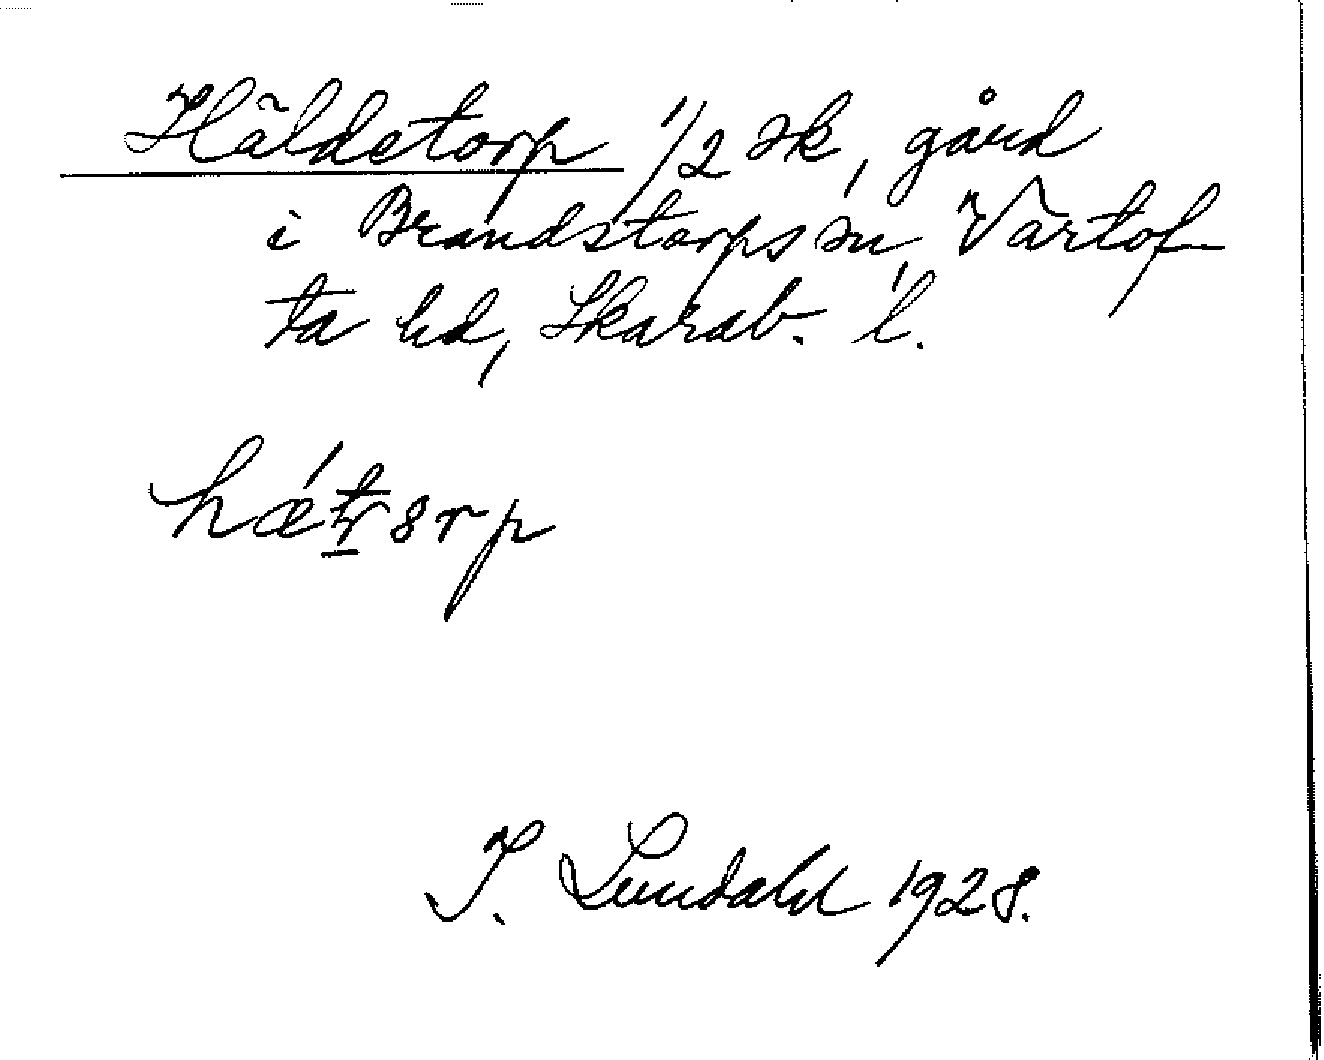 Häldetorp 1/2 sk, gård
i Brandstorps sn, Vartof-
ta hd, Skarab. l.
I. Lundahl 1928.